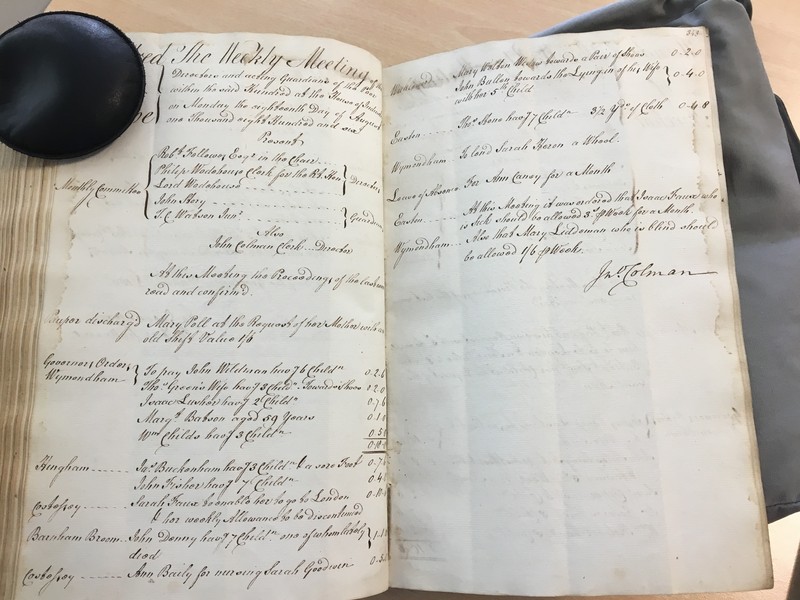 The Weekly Meeting of the
Directors and acting Guardians of the Poor
within the said Hundred at the House of
on Monday the eighteenth Day of August
one Thousand eight Hundred and six
Present
Robt. Fellowes Esqr. in the Chair
Philip Wodehouse Clerk for the Rt. Hon
Lord Wodehouse
Directors
Monthly Committee
John Hery
T. C. Watson Junr.
Guardians
Also
John Colman Clerk Director
At this Meeting the Proceedings of the last were
read and confirm'd.
Pauper discharg'd Mary Poll at the Request of her Mother with an
old Shift Value 1/6
Governors Orders
Wymondham
To pay John Wildman havg. 6 Childn.
Thos. Green's Wife havg. 3 Childn. Towards Shoes 0.2.0
Isaac Lusher havg. 2 Childn. 0.7.6
Margt. Batson aged 59 Years
Wm. Childs havg. 3 Childn.
Hingham Jas. Buckenham havg. 3 Childn. & a sore Foot
John Fisher havg. 7 Childn.
Costessey Sarah Faux to enable her to go to London
& her weekly Allowance to be discontinued
Barnham Broom John Denny havg. 7 Childn. one of whom lately
died
Costessey Ann Baily for nursing Sarah Goodwin
Mary Walton Weeks towards a Pair of Shoes 0.2.0
John Ballon towards the Lying in of his Wife
with her 5th Child
0.4.0
Easton Thos. Stone havg. 7 Childn. 3 1/2 Yds. of Cloth 0.4.8
Wymondham To lend Sarah Heron a Wheel.
Leave of Absence For Ann Caney for a Month
Easton At this Meeting it was ordered that Isaac Faux who
is sick should be allowed 3s. p Week for a Month
Wymondham Also that Mary Liddeman who is blind should
be allowed 1/6 p Week.
Jno. Colman